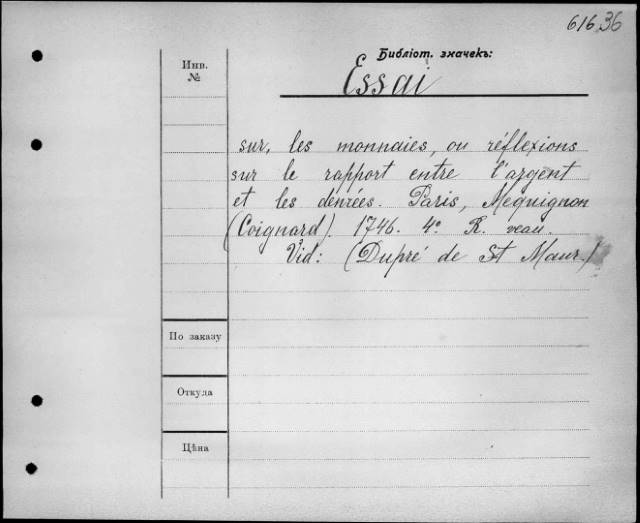 61636
Библіот. значекъ:
Инв.
№
Essai
sur, les monnaies, ou réflexions
sur le rapport entre l'argent
et les denrées. Paris, Mequignon
(Coignard). 1746. 4º R. veau.
Vid: (Dupré de St Maur.)
По заказу
Откуда
Цѣна